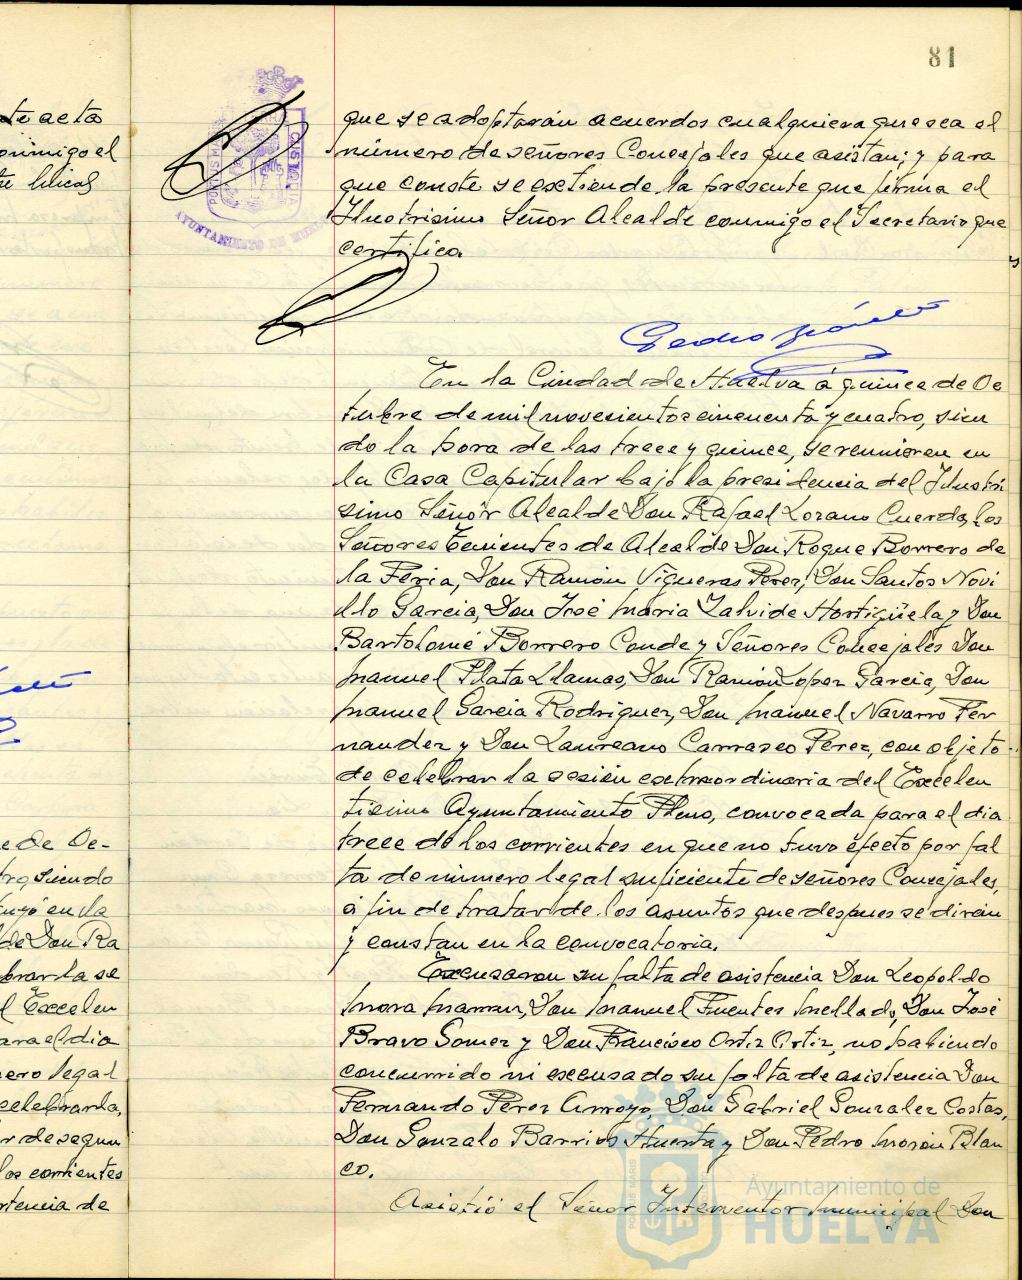 81
te acta
onmigo el
que se adoptarán acuerdos cualquiera que sea el
número de señores Concejales que asistan; y para
que conste se extiende la presente que firma el
Ilustrisimo Señor Alcalde conmigo el Secretario que
certifico.
AYUNTAMIENTO DE HUELVA
Pedro
En la Ciudad de Huelva á quince de Oc
tubre de mil novecientos cincuenta y cuatro, sien
do la hora de las trece y quince, se reunieron en
la Casa Capitular bajo la presidencia del Ilustri
simo Señor Alcalde Don Rafael Lozano Cuerda, los
Señores Tenientes de Alcalde Don Roque Borrero de
la Feria, Don Ramón Vigueras Perez, Don Santos Novi
llo Garcia, Don José Maria Zalvide Hortigüela y Don
Bartolomé Borrero Conde y Señores Concejales Don
Manuel Plata Llamas, Don Ramón Lopez Garcia, Don
Manuel Garcia Rodriguez, Don Manuel Navarro Fer
nandez y Don Laureano Carrasco Perez, con objeto
de celebrar la sesión extraordinaria del Excelen
tisimo Ayuntamiento Pleno, convocada para el dia
trece de los corrientes en que no tuvo efecto por fal
ta de número legal suficiente de señores Concejales,
á fin de tratar de los asuntos que despues se dirán
y constan en la convocatoria.
Excusaron su falta de asistencia Don Leopoldo
Mora Don Manuel Fuentes Mellado, Don José
Bravo Gomez y Don Francisco Ortiz Ortiz, no habiendo
concurrido ni excusado su falta de asistencia Don
Fernando Perez Arroyo, Don Gabriel Gonzalez Costas,
Don Gonzalo Barrios Huerta y Don Pedro Morón Blan
co.
Asistió el Señor Interventor Municipal Don
e de Oc-
tro, siendo
en la
de Don Ra
brarla se
l Excelen
ara el dia
ero legal
celebrarla,
r de segun
los corrientes
stencia de
Ayuntamiento de
HUELVA